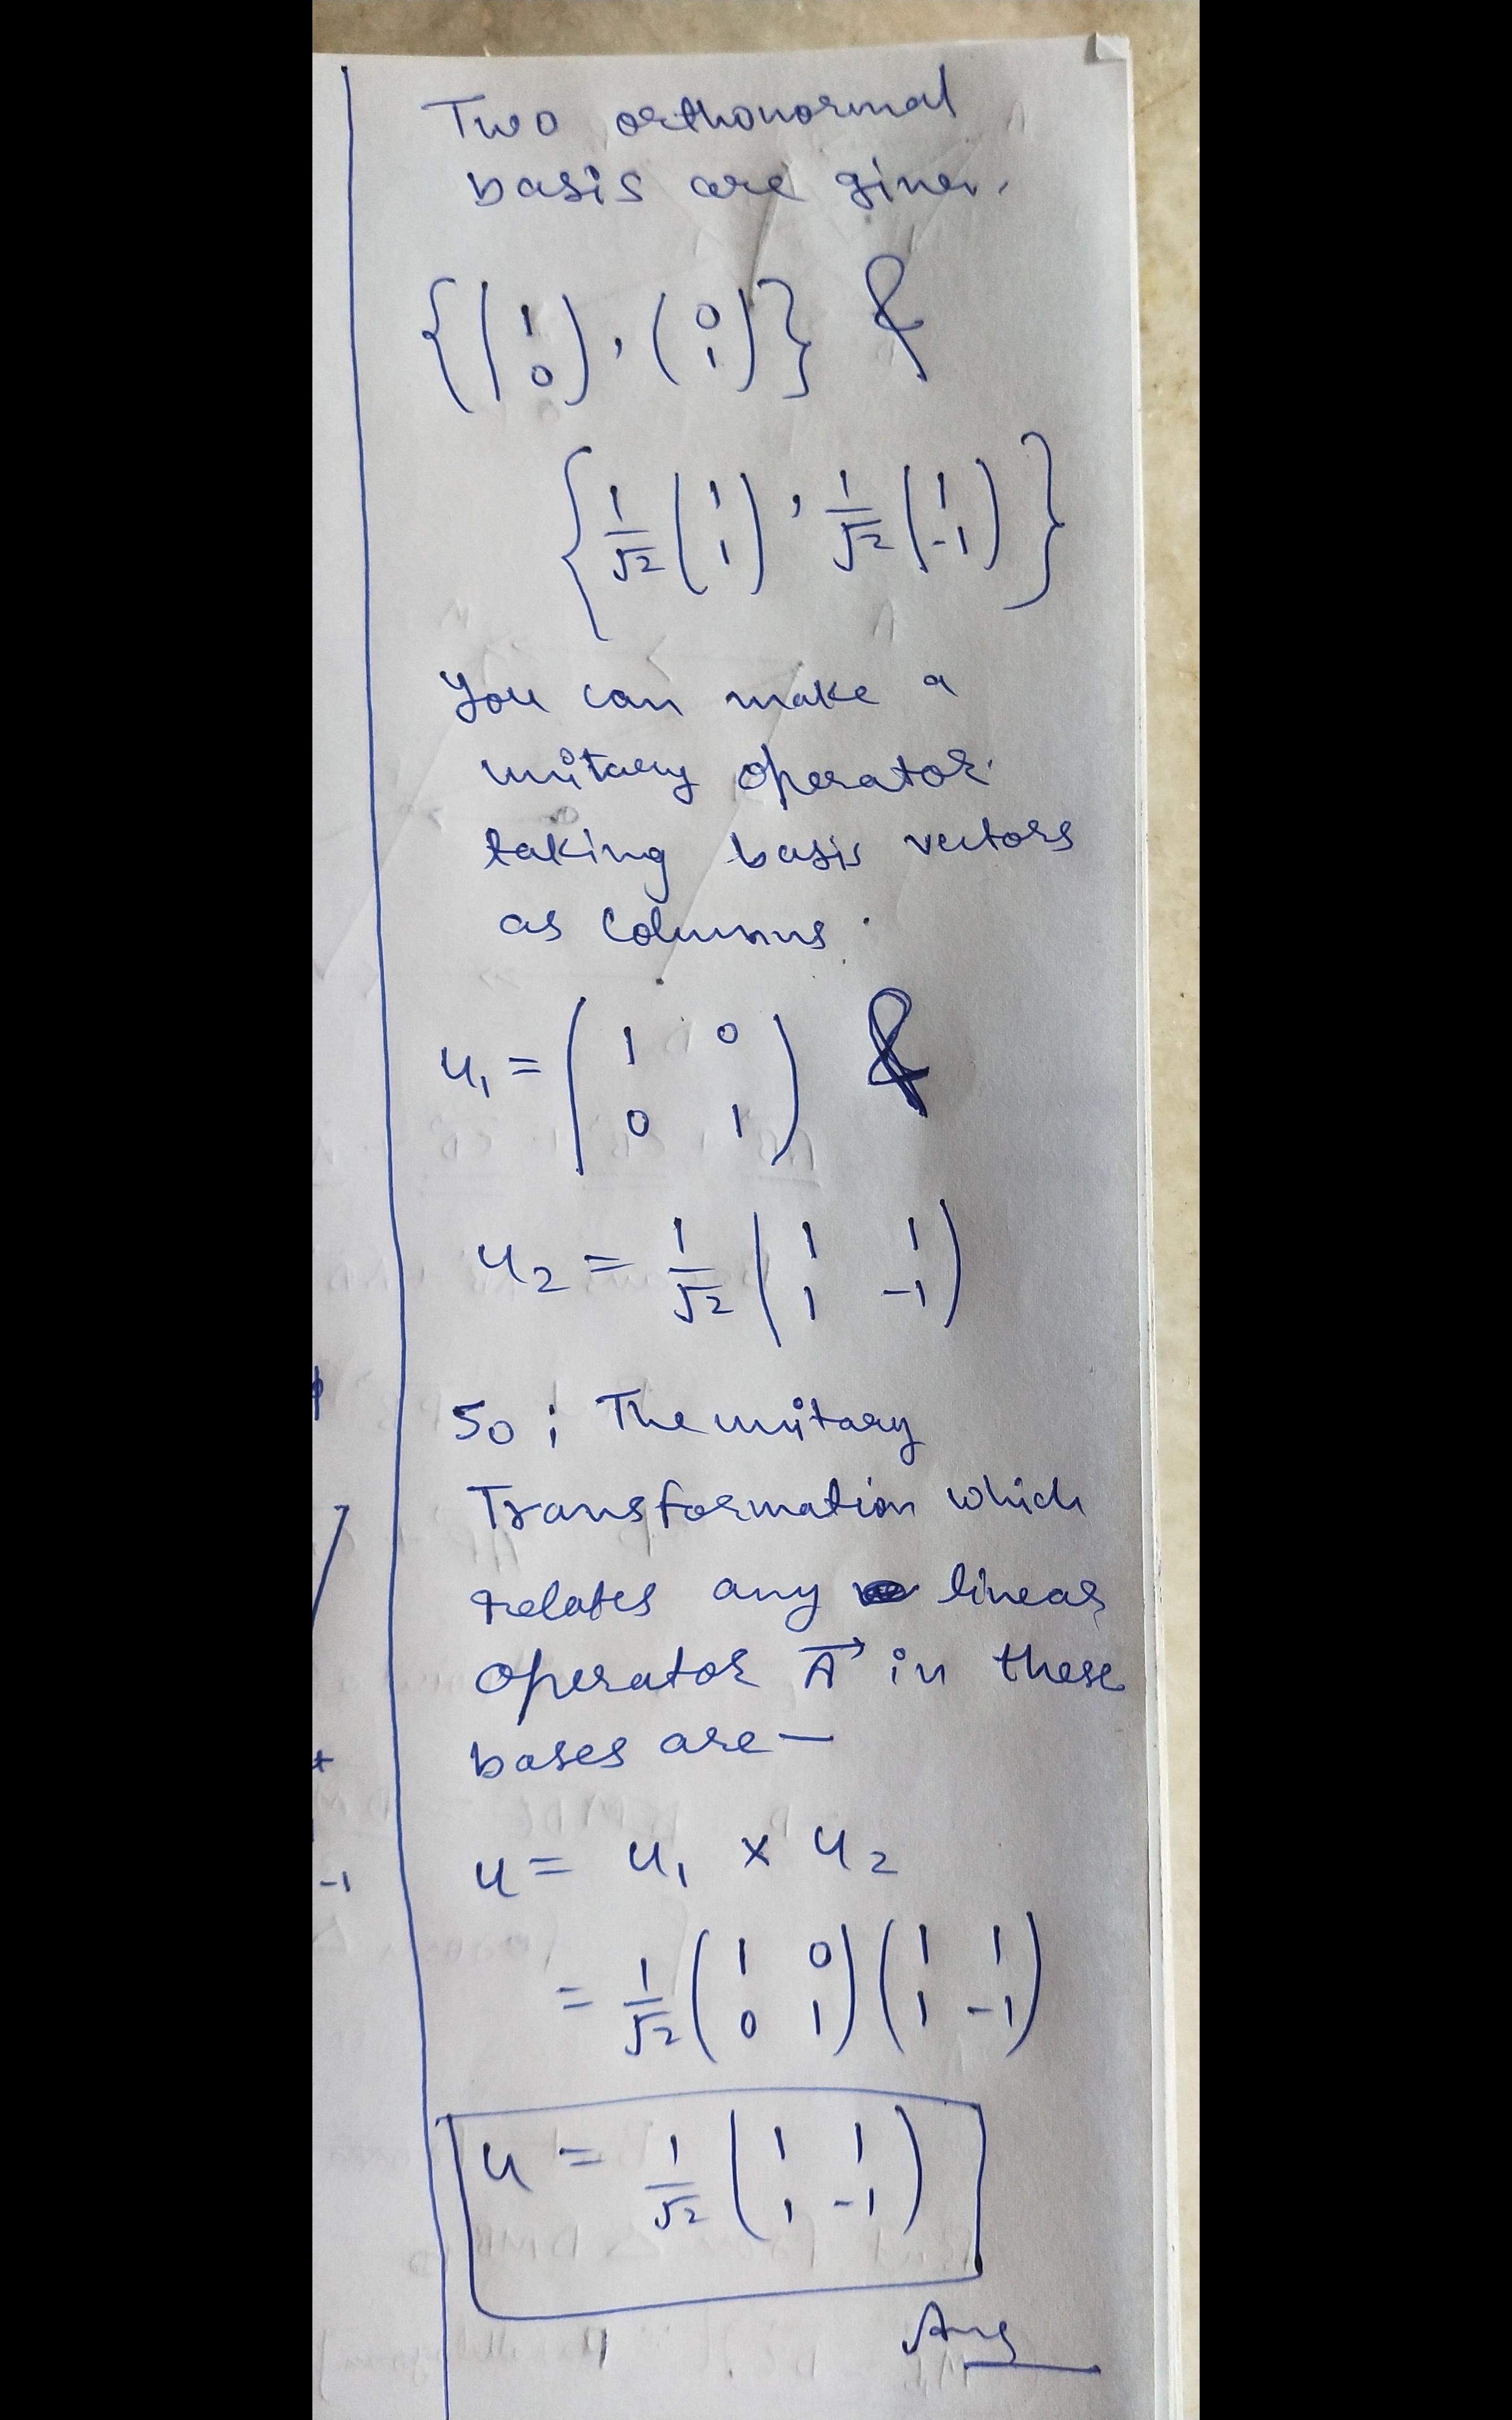 Two orthonormal
basis are given.
{(1 0), (0 1)} &
{1/√2 (1 1), 1/√2 (1 -1)}
You can make a
unitary operator
taking basis vectors
as columns.
u₁ = (1 0 0 1) &
u₂ = 1/√2 (1 1 1 -1)
So; The unitary
Transformation which
relates any linear
operator A⃗ in these
bases are—
u = u₁ × u₂
= 1/√2 (1 0 0 1) (1 1 1 -1)
u = 1/√2 (1 1 1 -1)
Ans
-1